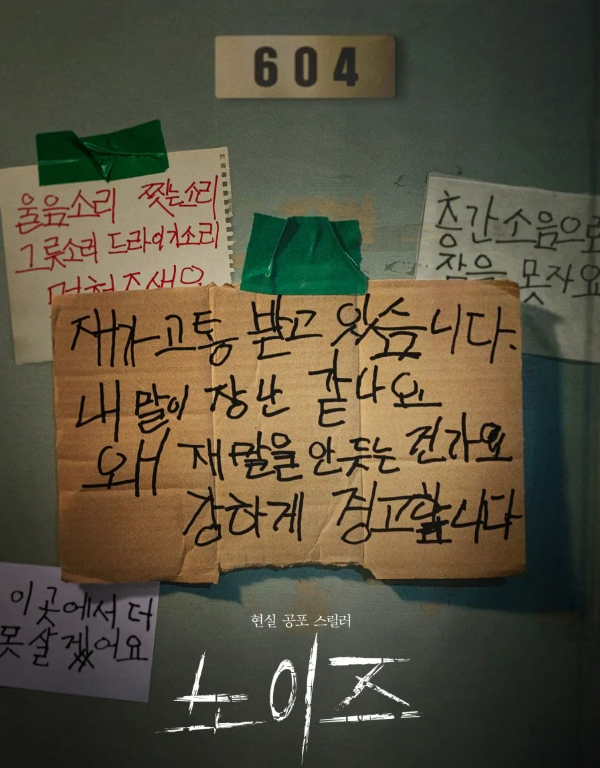 604
울음소리 찢는소리
그릇소리 드라이기소리
멈춰주세요
층간소음으로
잠을 못자요
재가 고통 받고 있습니다.
내 말이 장난 같나요
왜 재 말을 안듣는 건가요
강하게 경고합니다
이 곳에서 더
못살겠어요
현실 공포 스릴러
노이즈